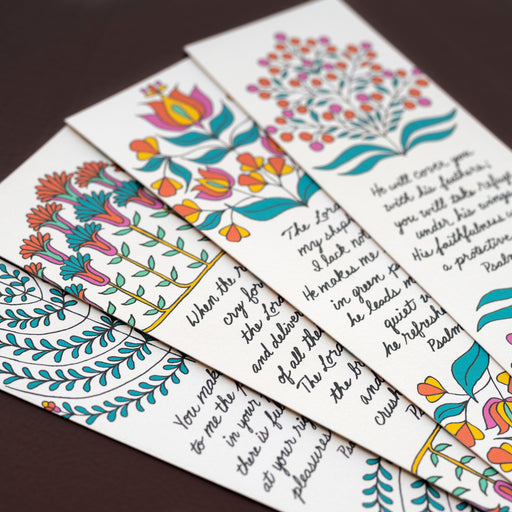 He will cover you
with his feathers;
you will take refuge
under his wings
His faithfulness w
a protective
Psalm
The Lord
my shep
I lack not
He makes me
in green p
he leads m
quiet w
he refresh
Psalm
When the r
cry for
the Lord
and deliver
of all the
The Lord
the bro
and
crus
Ps
You make
to me the
in your
there is fu
at your rig
pleasures
Psa